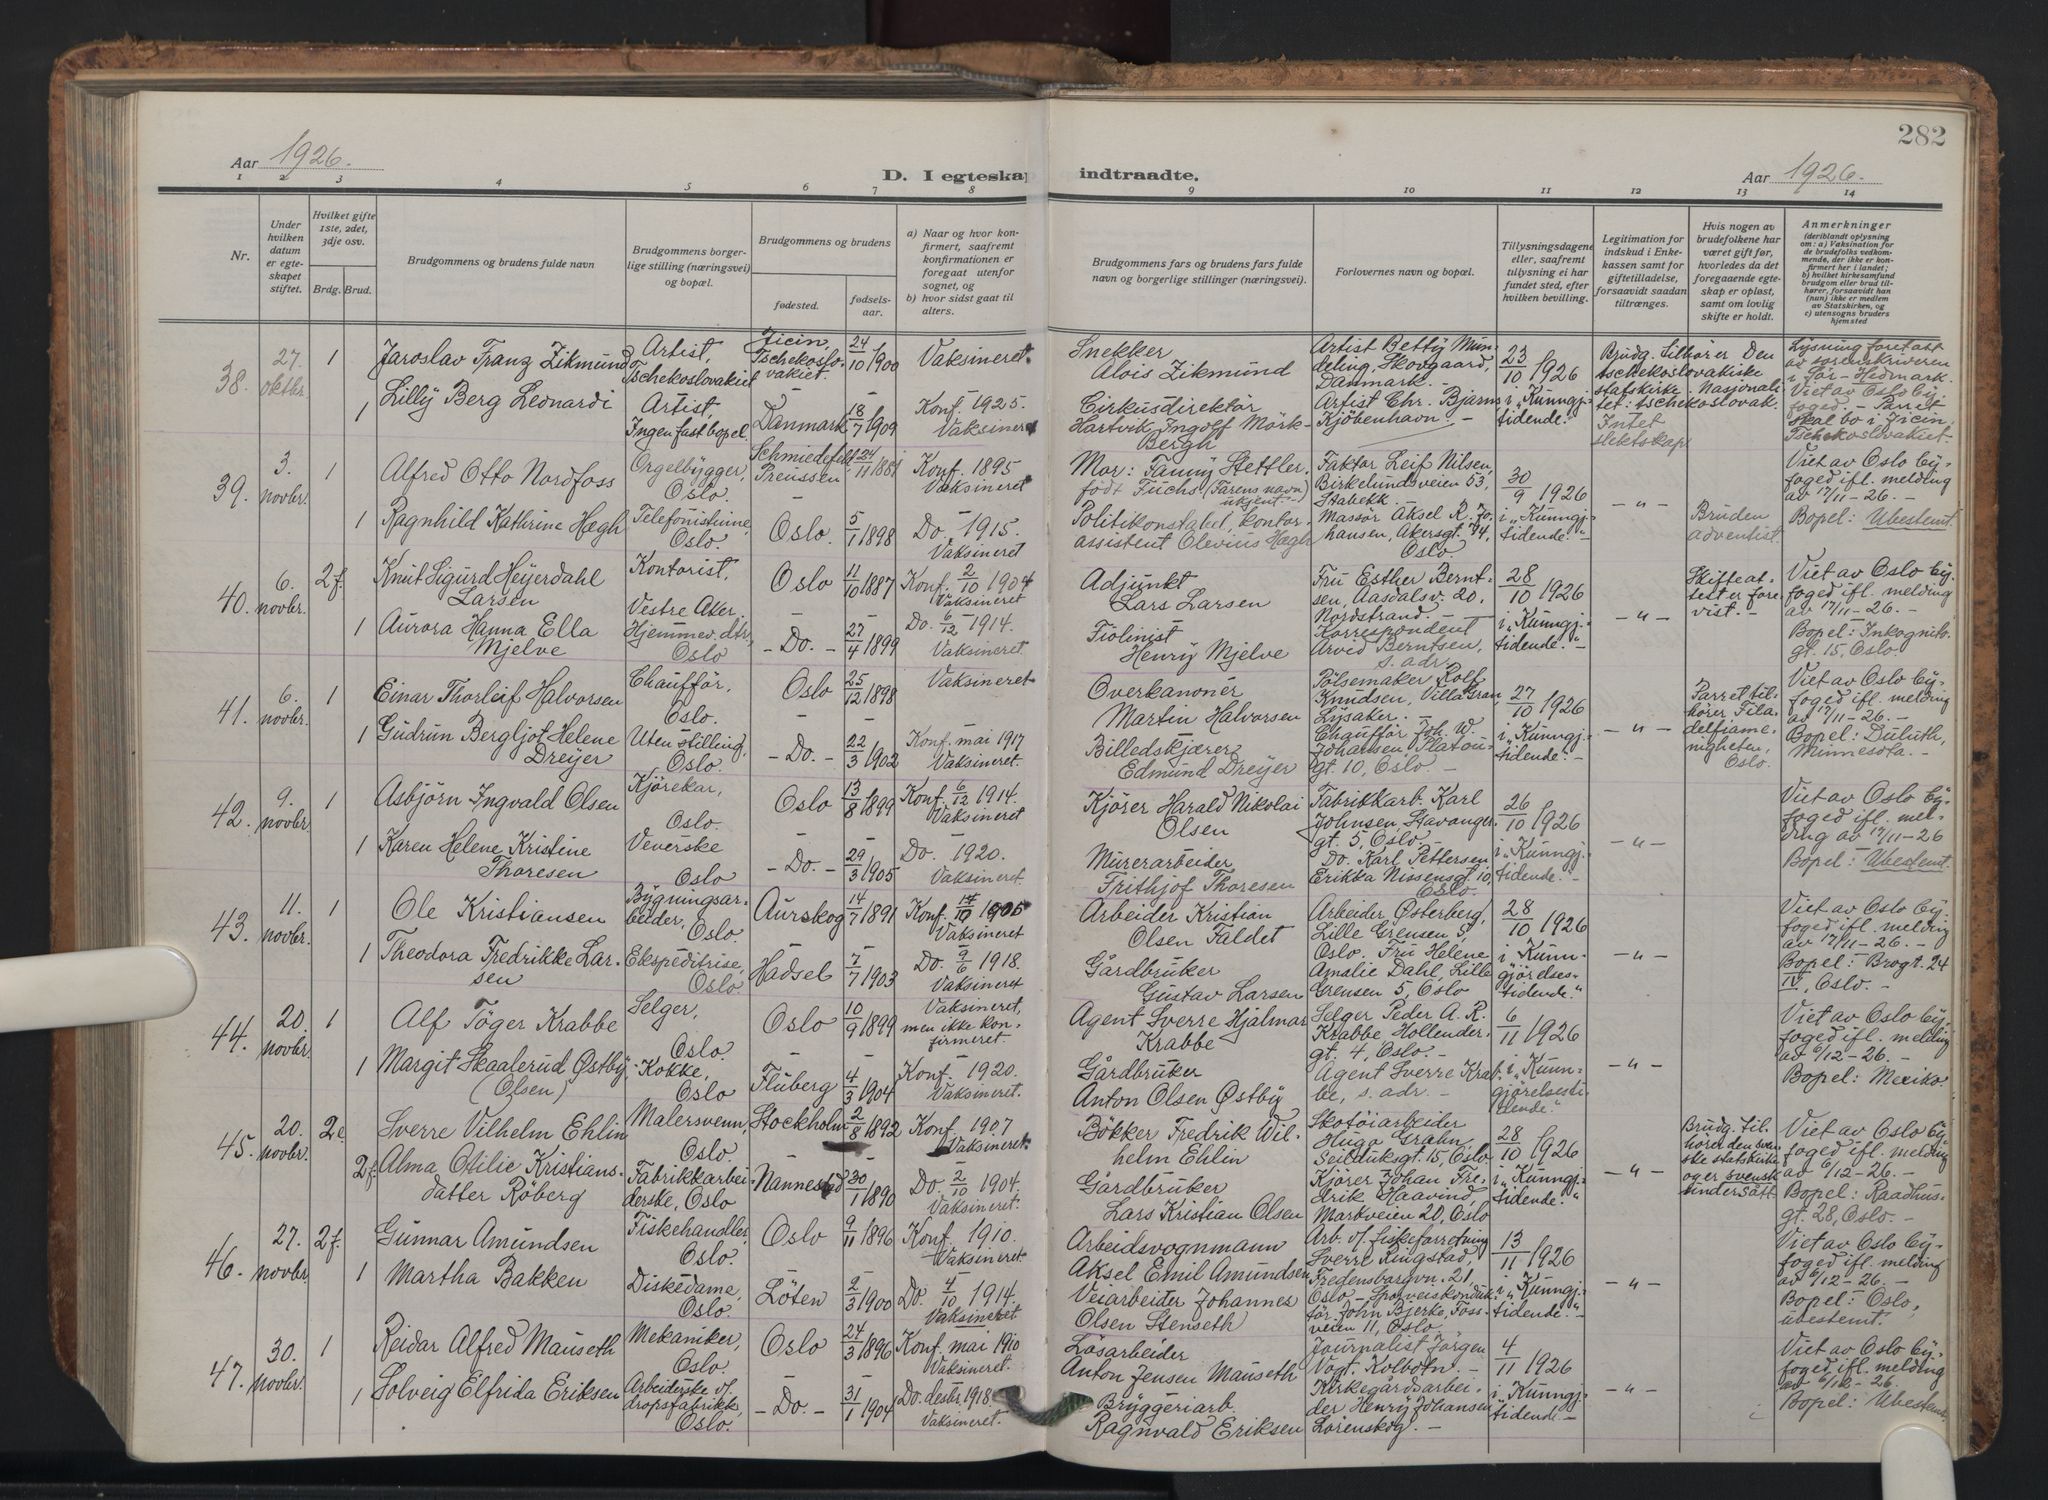 282
Aar 1926.
D. I egteskap indtraadte.
Aar 1926.
1 2 3 4 5 6 7 8 9 10 11 12 13 14
Nr.
Under hvilken datum er egteskapet stiftet.
Hvilket gifte 1ste, 2det, 3dje osv.
Brdg. Brud.
Brudgommens og brudens fulde navn
Brudgommens borgerlige stilling (næringsvei) og bopæl.
Brudgommens og brudens
fødested.
fødselsaar.
a) Naar og hvor konfirmert, saafremt konfirmationen er foregaat utenfor sognet, og
b) hvor sidst gaat til alters.
Brudgommens fars og brudens fars fulde navn og borgerlige stillinger (næringsvei).
Forlovernes navn og bopæl.
Tillysningsdagene eller, saafremt tulysning ei har fundet sted, efter hvilken bevilling.
Legitimation for indskud i Enkekassen samt for giftetilladelse, forsaavidt saadan tiltrænges.
Hvis nogen av brudefolkene har været gift før, hvorledes da det foregaaende egteskap er opløst, samt om lovlig skifte er holdt.
Anmerkninger
(deriblandt oplysning om: a) Vaksination for de brudefolks vedkommende, der ikke er konfirmert her i landet; b) hvilket kirkesamfund brudgom eller brud tilhører, forsaavidt han (hun) ikke er medlem av Statskirken, og c) utensogns bruders hjemsted
38. 27. oktbr. 1 Jaroslav Franz Zikmund Artist, Tschekoslovakiet Jicin, Tschekoslovakiet. 24/10 1900 Vaksineret. Snekker Alois Zikmund Artist Betty Mundeling, Skovgaard, Danmark. - 23/10 1926 i "Kunngj. tidende." Brudg. tilhører Den tschekoslovakiske statskirke. Nasjonalitet: tschekoslovak. Intet slektskap. Lysning foretatt av sorenskriveren i Sør-Hedmark. Viet av Oslo byfoged. - Parret skal bo i Jicin, Tschekoslovakiet.
1 Lilly Berg Leonardi Artist, Ingen fast bopel. Danmark 18/7 1909 Konf. 1925. Vaksineret Cirkusdirektør Hartvik Ingolf Mörk-Bergh Artist Chr. Bjarns Kjöbenhavn.
39. 3. novbr. 1 Alfred Otto Nordfoss Orgelbygger, Oslo. Schmiedefeld, Preussen 24/11 1881 Konf. 1895 Vaksineret Mor: Fanny Stettler, födt Fuchs, (Farens navn ukjent.-) Faktor Leif Nilsen, Birkelundsveien 53, Stabekk. 30/9 1926 i "Kunngj. tidende." - " - Viet av Oslo byfoged ifl. melding av 17/11-26. - Bopel: Ubestemt.
1 Ragnhild Kathrine Hægh Telefonistinne, Oslo. Oslo. 5/1 1898 Do. 1915. Vaksineret Politikonstabel, kontorassistent Olevius Hægh Massör Aksel R. Johansen, Akersgt. 74, Oslo. Bruden adventist.
40. 6. novbr. 2 f. Knut Sigurd Heyerdahl Larsen Kontorist, Vestre Aker. Oslo 11/10 1887 Konf. 2/10 1904 Vaksineret Adjunkt Lars Larsen Fru Esther Berntsen, Aasdalsv. 20, Nordstrand. - 28/10 1926 i "Kunngj. tidende." - " - Skifteattest er forevist. - Viet av Oslo byfoged ifl. melding av 17/11-26. - Bopel: Inkognitogt. 15, Oslo.
1 Aurora Hanna Ella Mjelve Hjemmev. dtr, Oslo - Do. - 27/4 1899 Do. 6/12 1914. Vaksineret. Fiolinist Henry Mjelve Korrespondent Arvid Berntsen, s. adr.
41. 6. novbr. 1 Einar Thorleif Halvorsen Chaufför, Oslo. Oslo 25/12 1898 Vaksineret Overkanonér Martin Halvorsen Pölsemaker Rolf Knudsen, Villa Gran, Lysaker. 27/10 1926 i "Kunngj. tidende." - " - Parret tilhörer Filadelfiamenigheten, Oslo. Viet av Oslo byfoged ifl. melding av 17/11-26. - Bopel: Duluth, Minnesota. -
1 Gudrun Bergljot Helene Dreyer Uten stilling, Oslo. - Do. - 22/3 1902 Konf. mai 1917 Vaksineret. Billedskjærer Edmund Dreyer Chauffør Joh. W. Johansen, Platougt. 10, Oslo. -
42. 9. novbr. 1 Asbjörn Ingvald Olsen Kjörekar, Oslo. Oslo 13/8 1899 Konf. 6/12 1914. Vaksineret Kjörer Harald Nikolai Olsen Fabrikkarb. Karl Johnsen, Stavangergt. 5, Oslo. - 26/10 1926 i "Kunngj. tidende." - " - Viet av Oslo byfoged ifl. melding av 17/11-26 Bopel: Ubestemt.
1 Karen Helene Kristine Thoresen Veverske Oslo - Do. - 29/3 1905 Do. 1920. Vaksineret. Murerarbeider Frithjof Thoresen Do. Karl Pettersen Erikka Nissensgt. 10, Oslo.
43. 11. novbr. 1 Ole Kristiansen Bygningsarbeider, Oslo. Aurskog 14/7 1891 Konf. 14/10 1905 Vaksineret Arbeider Kristian Olsen Faldet Arbeider Østerberg, Lille Grensen 5, Oslo. 28/10 1926 i "Kunngjörelsestidende." - " - Viet av Oslo byfoged ifl. melding av 17/11-26. - Bopel: Brogt. 24 IV, Oslo. -
1 Theodora Fredrikke Larsen Ekspeditrise, Oslo. Hadsel 7/7 1903 Do. 9/6 1918. Vaksineret Gårdbruker Gustav Larsen Fru Helene Amalie Dahl, Lille Grensen 5, Oslo
44. 20. novbr. 1 Alf Töger Krabbe Selger, Oslo. Oslo 10/9 1899 Vaksineret, men ikke konfirmeret. Agent Sverre Hjalmar Krabbe Selger Peder A. R. Krabbe Hollendergt. 4, Oslo. - 6/11 1926 i "Kunngjörelsestidende." - " - Viet av Oslo byfoged ifl. melding av 6/12-26. - Bopel: Mexiko.
1 Margit Skaalerud Østby (Olsen) Kokke, Oslo Fluberg 4/3 1904 Konf. 1920. Vaksineret. Gårdbruker Anton Olsen Østby Agent Sverre Krabbe, s. adr. -
45. 20. novbr. 2 e Sverre Vilhelm Ehlin Malersvenn, Oslo. Stockholm 2/8 1892 Konf. 1907 Vaksineret. Bökker Fredrik Wilhelm Ehlin Skotöiarbeider Hugo Grahn, Seilduksgt. 15, Oslo. 28/10 1926 i "Kunngj. tidende." - " - Brudg. tilhörer den svenske statskirke og er svensk undersått. Viet av Oslo byfoged ifl. melding av 6/12-26. - Bopel: Raadhusgt. 28, Oslo. -
2 f. Alma Otilie Kristiansdatter Röberg Fabrikkarbeiderske, Oslo Nannestad 30/1 1890 Do. 2/10 1904. Vaksineret. Gårdbruker Lars Kristian Olsen Kjörer Johan Fredrik Haavind, Markveien 20, Oslo
46. 27. novbr 2 f. Gunnar Amundsen Fiskehandler, Oslo. Oslo 9/11 1896 Konf. 1910. Vaksineret. Arbeidsvognmann Aksel Emil Amundsen Arb. v/ fiskeforretning Sverre Ringstad, Fredensborgvn. 21, Oslo - 13/11 1926 i "Kunngj. tidende." - " - Viet av Oslo byfoged ifl. melding av 6/12-26. - Bopel: Oslo, ubestemt.
1 Martha Bakken Diskedame, Oslo. Löten 2/3 1900 Do. 4/10 1914. Vaksineret Veiarbeider Johannes Olsen Stenseth Sporveiskonduktör John Bjerke, Fossveien 11, Oslo.
47. 30. novbr. 1 Reidar Alfred Mauseth Mekaniker, Oslo. Oslo 24/3 1896 Konf. mai 1910 Vaksineret. Lösarbeider Anton Jensen Mauseth Journalist Jörgen Vogt, Kolbotn. - 4/11 1926 i "Kunngj. tidende. - - " - Viet av Oslo byfoged ifl. melding av 6/12-26. Bopel: Ubestemt.
1 Solveig Elfrida Eriksen Arbeiderske v/ dropsfabrikk, Oslo. - Do. - 31/1 1904 Do. desbr. 1918. Vaksineret. Bryggeriarb. Ragnvald Eriksen Kirkegårdsarbeider Henry Johansen Lörenskog. -